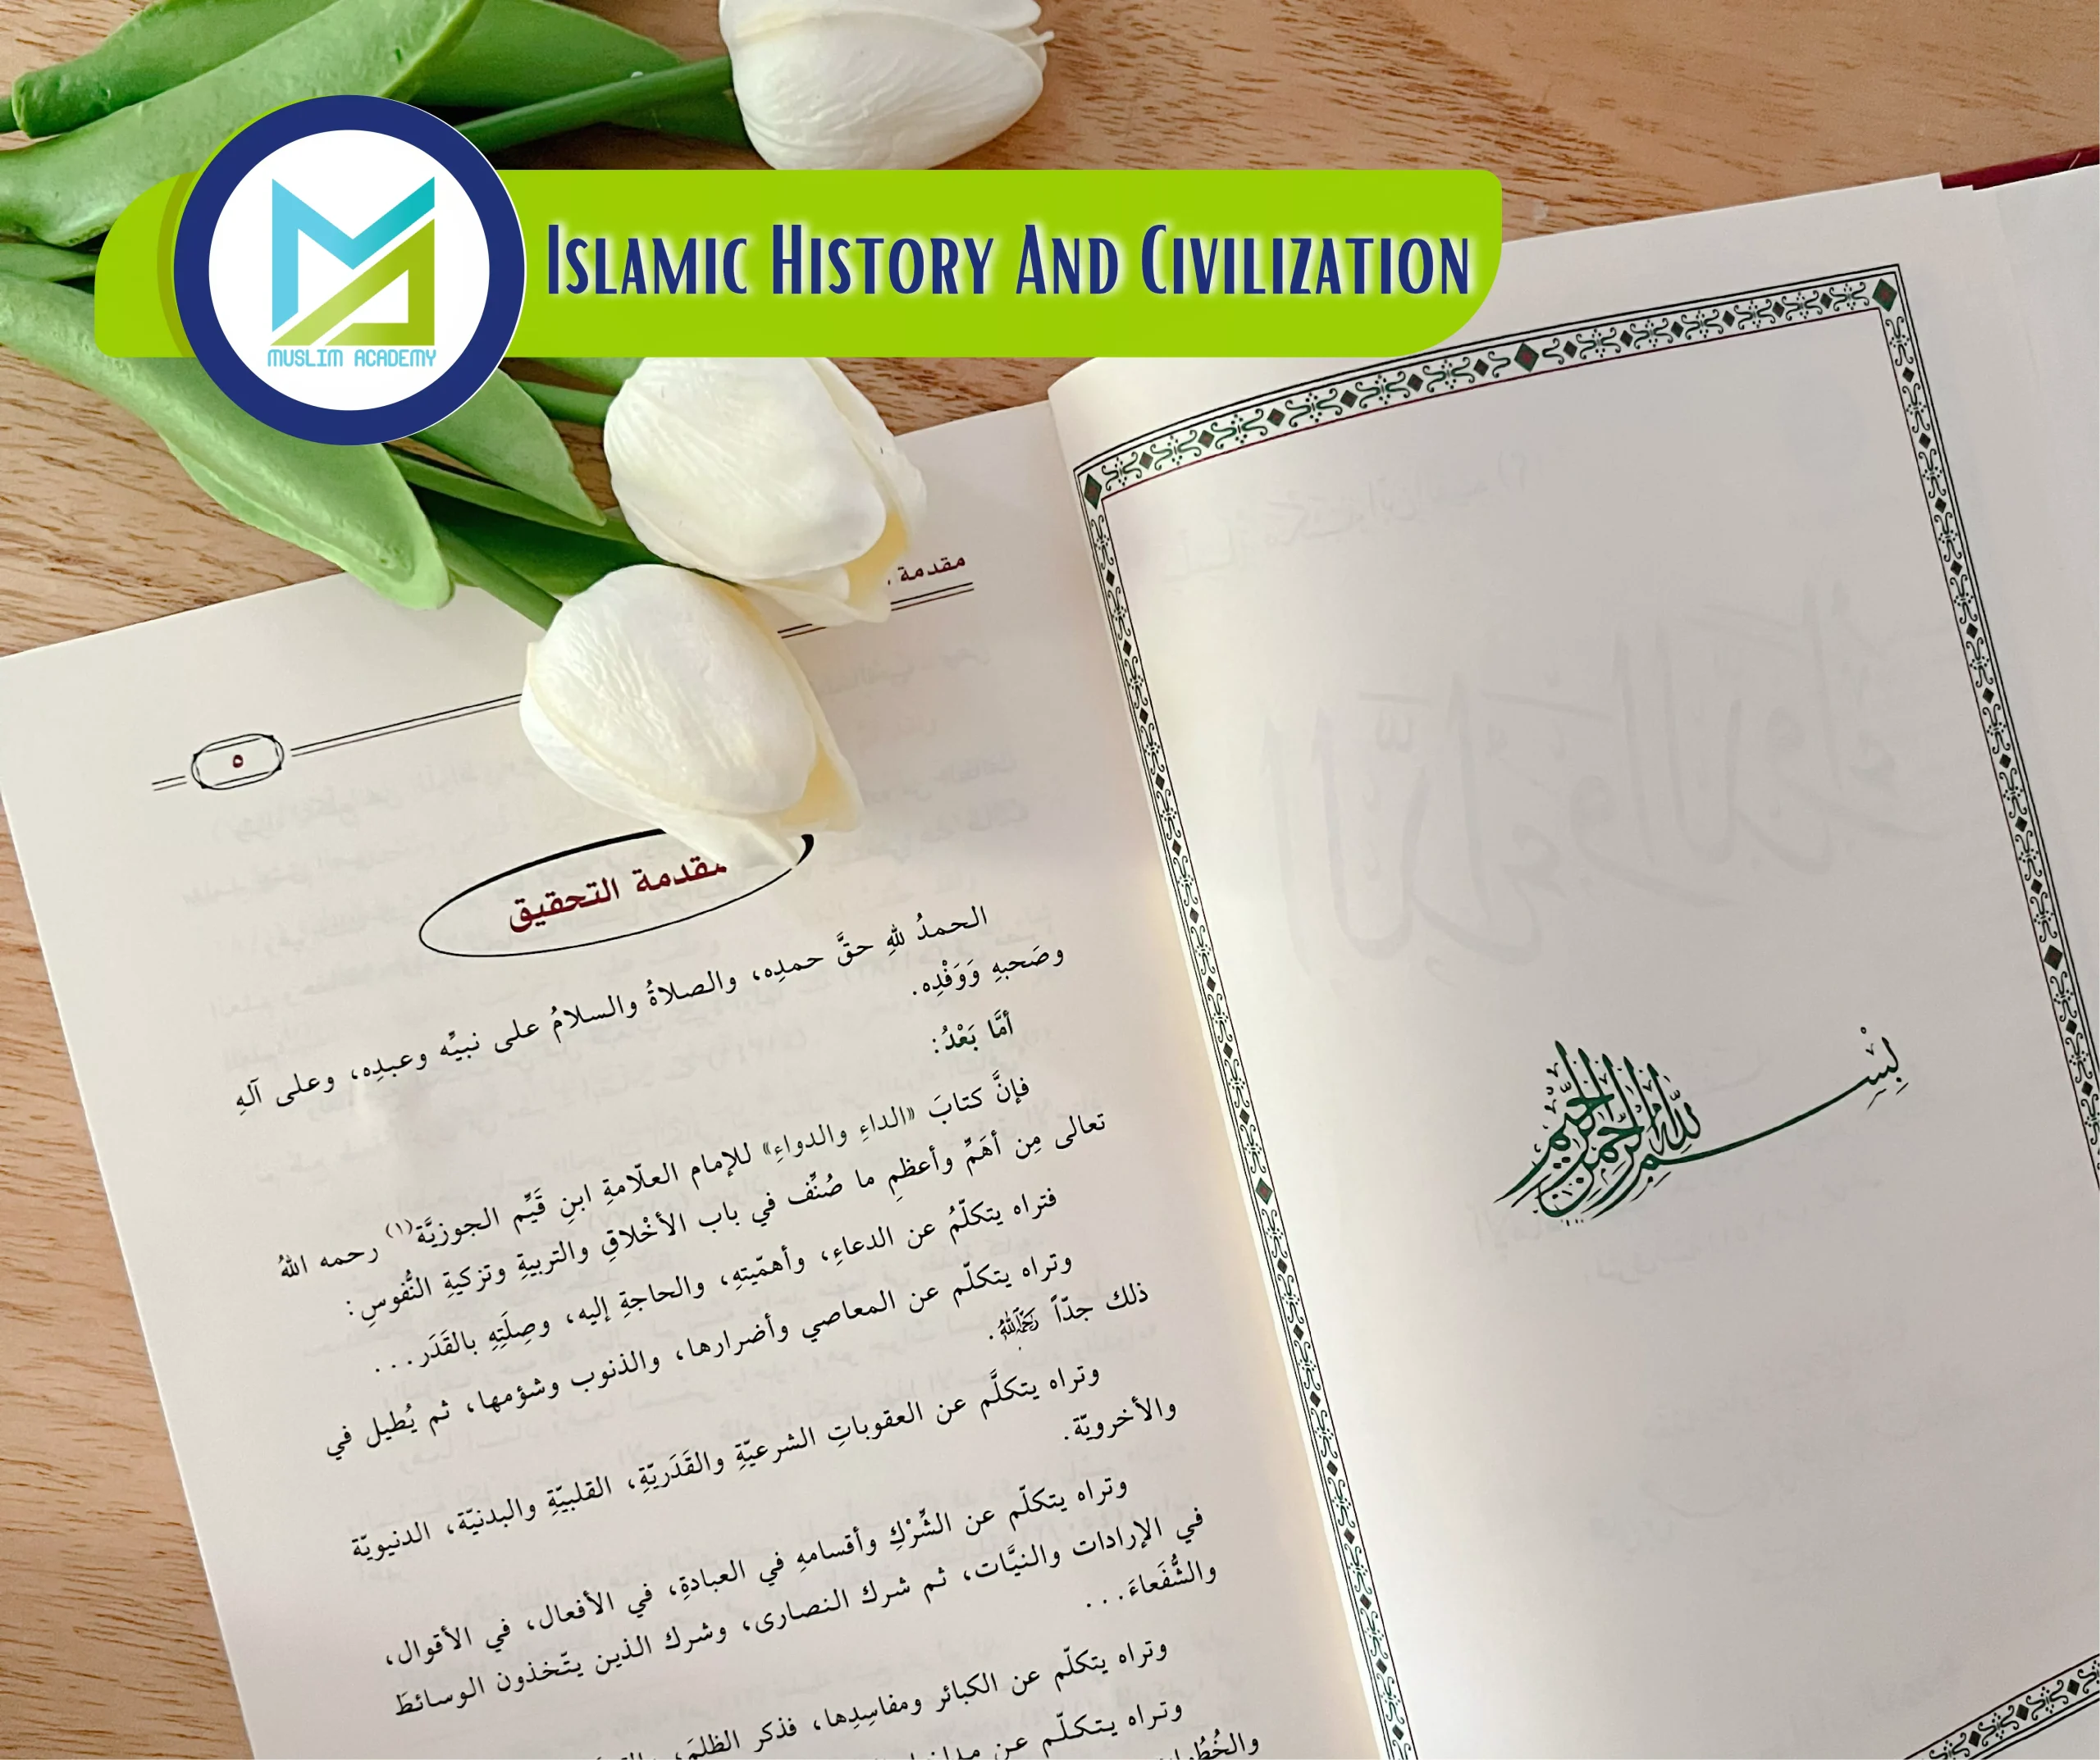 ISLAMIC HISTORY AND CIVILIZATION
MUSLIM ACADEMY
بِسْمِ اللهِ الرَّحْمٰنِ الرَّحِيمِ
مقدمة
٥
مقدمة التحقيق
الحمدُ للهِ حقَّ حمدِه، والصلاةُ والسلامُ على نبيِّه وعبدِه، وعلى آلهِ
وصَحبهِ وَوَفْدِه.
أمَّا بَعْدُ:
فإنَّ كتابَ «الداءِ والدواءِ» للإمام العلّامةِ ابنِ قَيِّم الجوزيَّة(١) رحمه اللهُ
تعالى مِن أهَمِّ وأعظمِ ما صُنِّف في باب الأخْلاقِ والتربيةِ وتزكيةِ النُّفوسِ:
فتراه يتكلّمُ عن الدعاءِ، وأهمّيتهِ، والحاجةِ إليه، وصِلَتِهِ بالقَدَر...
وتراه يتكلّم عن المعاصي وأضرارها، والذنوب وشؤمها، ثم يُطيل في
ذلك جدّاً رَحِمَهُ اللهُ.
وتراه يتكلَّم عن العقوباتِ الشرعيّةِ والقَدَريّةِ، القلبيّةِ والبدنيّة، الدنيويّة
والأخرويّة.
وتراه يتكلّم عن الشِّرْكِ وأقسامهِ في العبادةِ، في الأفعال، في الأقوال،
في الإرادات والنيَّات، ثم شرك النصارى، وشرك الذين يتّخذون الوسائطَ
والشُّفَعاءَ...
وتراه يتكلّم عن الكبائر ومفاسِدِها، فذكر الظلمَ،
وتراه يتكلّم عن